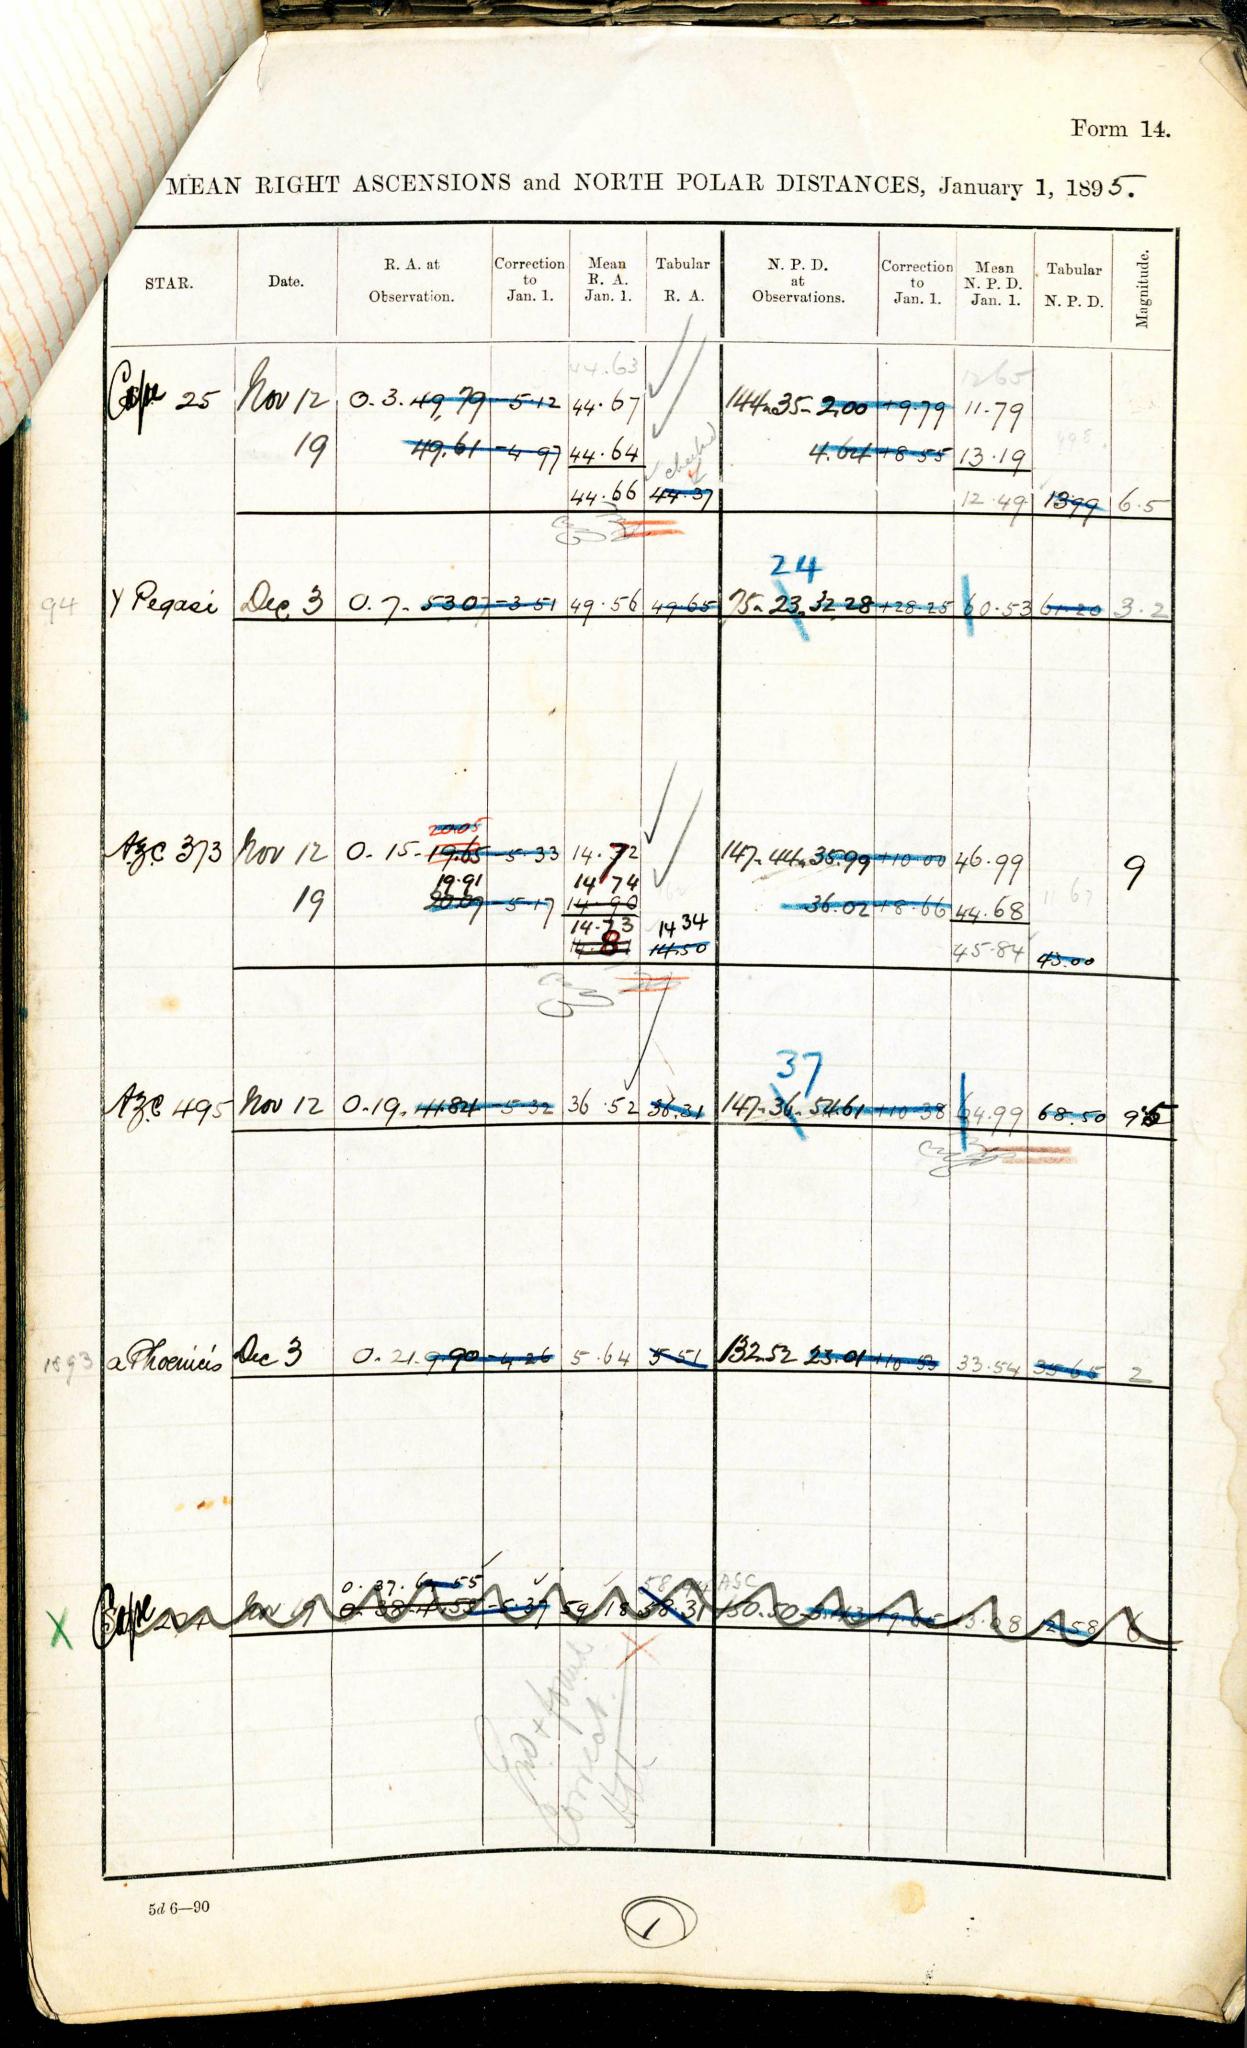 Form 14.
MEAN RIGHT ASCENSIONS and NORTH POLAR DISTANCES, January 1, 1895.
STAR. Date. R. A. at Observation. Correction to Jan. 1. Mean R. A. Jan. 1. Tabular R. A. N. P. D. at Observations. Correction to Jan. 1. Mean N. P. D. Jan. 1. Tabular N. P. D. Magnitude.
44.63 12.65
Cape 25 Nov 12 0. 3. 49.79 -5.12 44.67 144. 35. 2.00 +9.79 11.79
19 49.61 -4.97 44.64 4.64 +8.55 13.19
checked
44.66 44.37 12.49 13.99 6.5
24
94 γ Pegasi Dec 3 0. 7. 53.07 -3.51 49.56 49.65 75. 23. 32.28 +28.25 60.53 61.20 3.2
20.05
AZC 373 Nov 12 0. 15. 19.65 -5.33 14.72 147. 44. 36.99 +10.00 46.99 9
19.91 14.74
19 20.07 -5.17 14.90 36.02 +8.66 44.68
14.73 14 34
14.81 14.50 45.84 43.00
37
AZC 495 Nov 12 0. 19. 41.84 -5.32 36.52 36.31 147. 36. 54.61 +10.38 64.99 68.50 9.5
1893 α Phoenicis Dec 3 0. 21. 9.90 -4.26 5.64 5.51 132. 52 23.01 +10.53 33.54 35.65 2
0. 37. 64.55
Cape Nov 19 0. 38. 4.55 -5.37 59.18 58.31 150. 50 3.08 2.58 6
Exd & found
correct.
5d 6—90
1